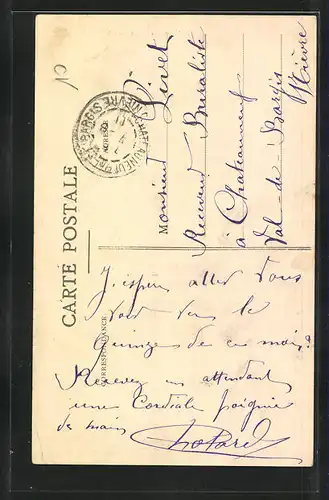 CARTE POSTALE
CORRESPONDANCE
J'espère aller vous
voir vers le
quinze de ce mois.
Recevez en attendant
une Cordiale poignée
de main
Monsieur Livet
Receveur Buraliste
à Chateauneuf
Val-de-Bargis
Nièvre
CHATEAUNEUF-VAL-DE-BARGIS
NIEVRE